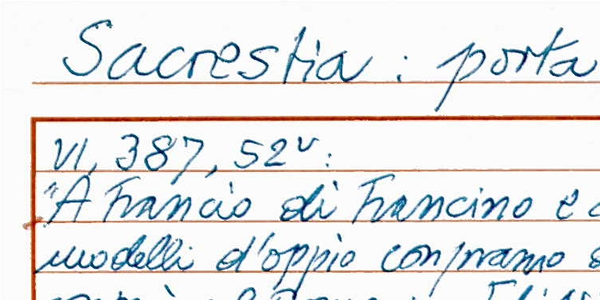 Sacrestia : porta
VI, 387, 52v:
"A Francio di Francino e
modelli d'oppio conpramo